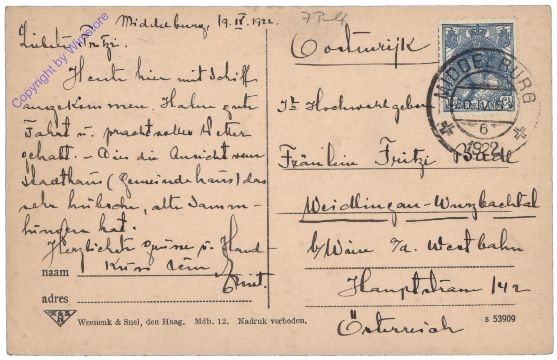 Middelburg, 19. IV. 1922.
Liebste Fritzi.
Heute hier mit Schiff
angekommen. Hatten gute
Fahrt u. prachtvolles Wetter
gehabt. - Dies die Ansicht vom
Stadthaus (Gemeindehaus) das
sehr hübsche, alte Samm-
lungen hat.
Herzlichste Grüsse u. Hand-
Kuss Dein
Ernst.
naam
adres
Weenenk & Snel, den Haag. Mdb. 12. Nadruk verboden.
Oostenrijk
Ihr Hochwohlgeboren
Fräulein Fritzi
Weidlingau-Wurzbachtal
b/Wien a/d. Westbahn
Hauptstrasse 142
Österreich
s 53909
MIDDELBURG
6
1922
Copyright by Winstore